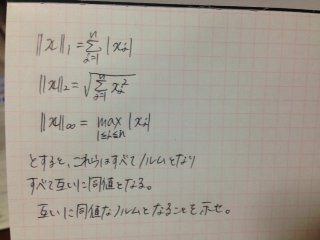 ‖x‖₁ = Σ_{i=1}^{n} |x_i|
‖x‖₂ = √(Σ_{i=1}^{n} x_i²)
‖x‖∞ = max_{1≤i≤n} |x_i|
とすると、これらはすべてノルムとなり
すべて互いに同値となる。
互いに同値なノルムとなることを示せ。